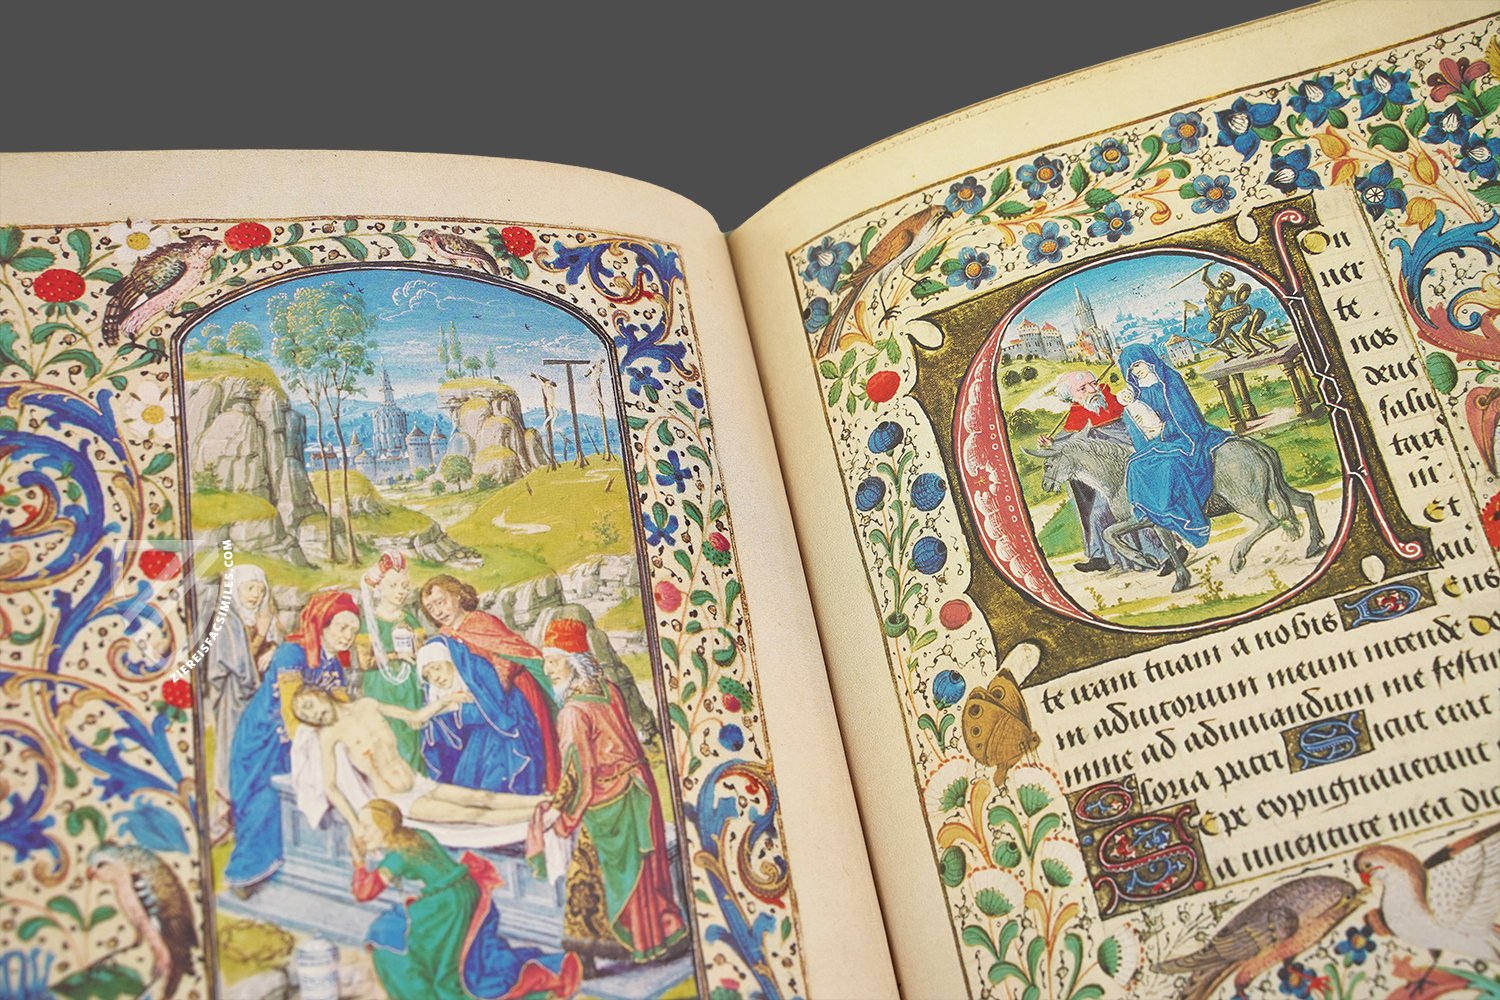 ZIEREISFACSIMILES.COM
On
uer
te.
nos
deus
salu
taris
nr.
Et
aū
te iram tuam a nobis Deus
in adiutorium meum intende Do
mine ad adiuuandum me festin
Gloria patri Sicut erat
Sepe expugnauerunt
a iuuentute mea dic